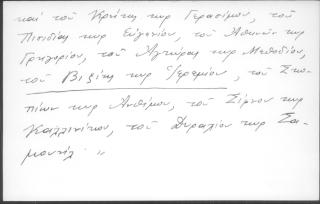 καὶ τοῦ Κρήτης κυρ Γερασίμου, τοῦ
Πισιδίας κυρ Εὐγενίου, τοῦ Ἀθηνῶν κυρ
Γρηγορίου, τοῦ Ἀγκύρας κυρ Μεθοδίου,
τοῦ Βιζύης κυρ Ἱερεμίου, τοῦ Σκο-
πίων κυρ Ἀνθίμου, τοῦ Σίφνου κυρ
Καλλινίκου, τοῦ Δυραχίου κυρ Σα-
μουήλ. "